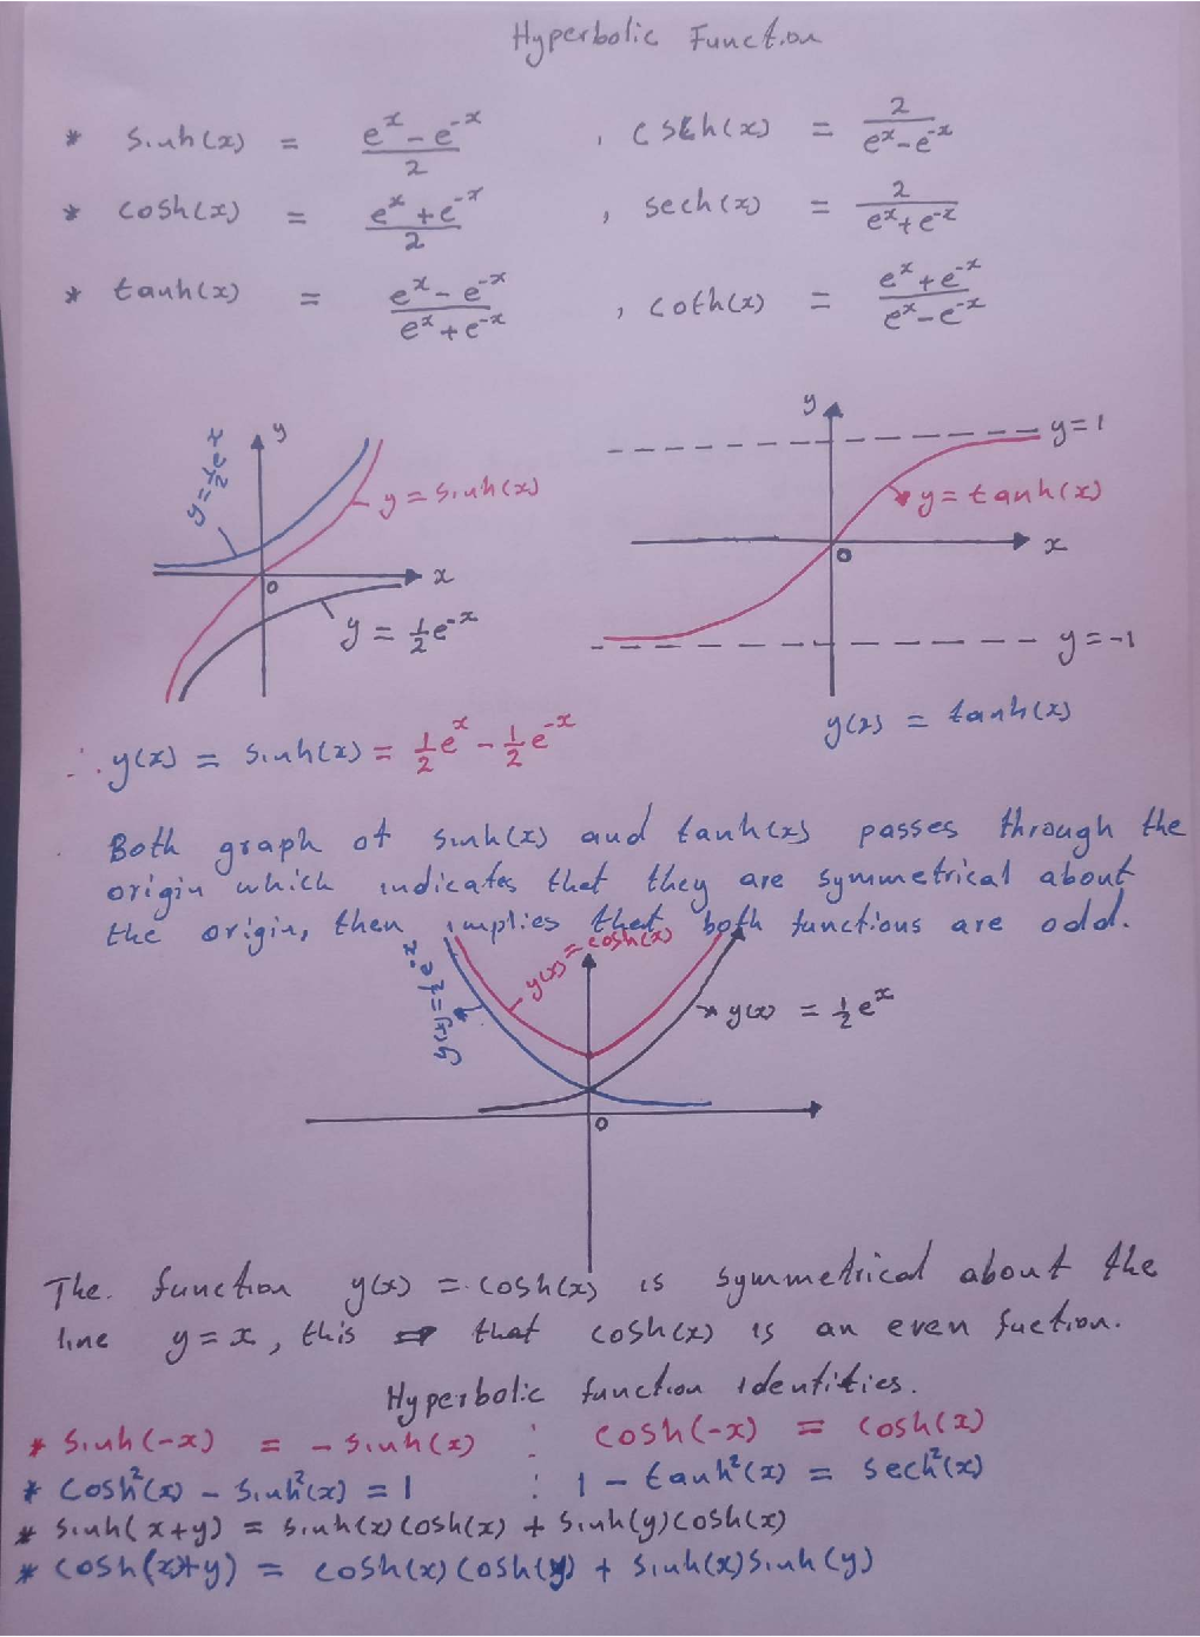 Hyperbolic Function
* sinh(x) = (e^x - e^-x)/2 , csch(x) = 2/(e^x - e^-x)
* cosh(x) = (e^x + e^-x)/2 , sech(x) = 2/(e^x + e^-x)
* tanh(x) = (e^x - e^-x)/(e^x + e^-x) , coth(x) = (e^x + e^-x)/(e^x - e^-x)
y = 1/2 e^x
y
y = sinh(x)
x
0
y = 1/2 e^-x
y
y = 1
y = tanh(x)
x
0
y = -1
∴ y(x) = sinh(x) = 1/2 e^x - 1/2 e^-x
y(x) = tanh(x)
Both graph of sinh(x) and tanh(x) passes through the
origin which indicates that they are symmetrical about
the origin, then implies that both functions are odd.
y(x) = 1/2 e^-x
y(x) = cosh(x)
y(x) = 1/2 e^x
0
The function y(x) = cosh(x) is symmetrical about the
line y = x, this ⇒ that cosh(x) is an even fuction.
Hyperbolic function identities.
* sinh(-x) = - sinh(x) : cosh(-x) = cosh(x)
* cosh²(x) - sinh²(x) = 1 : 1 - tanh²(x) = sech²(x)
* sinh(x+y) = sinh(x)cosh(x) + sinh(y)cosh(x)
* cosh(x+y) = cosh(x)cosh(y) + sinh(x)sinh(y)